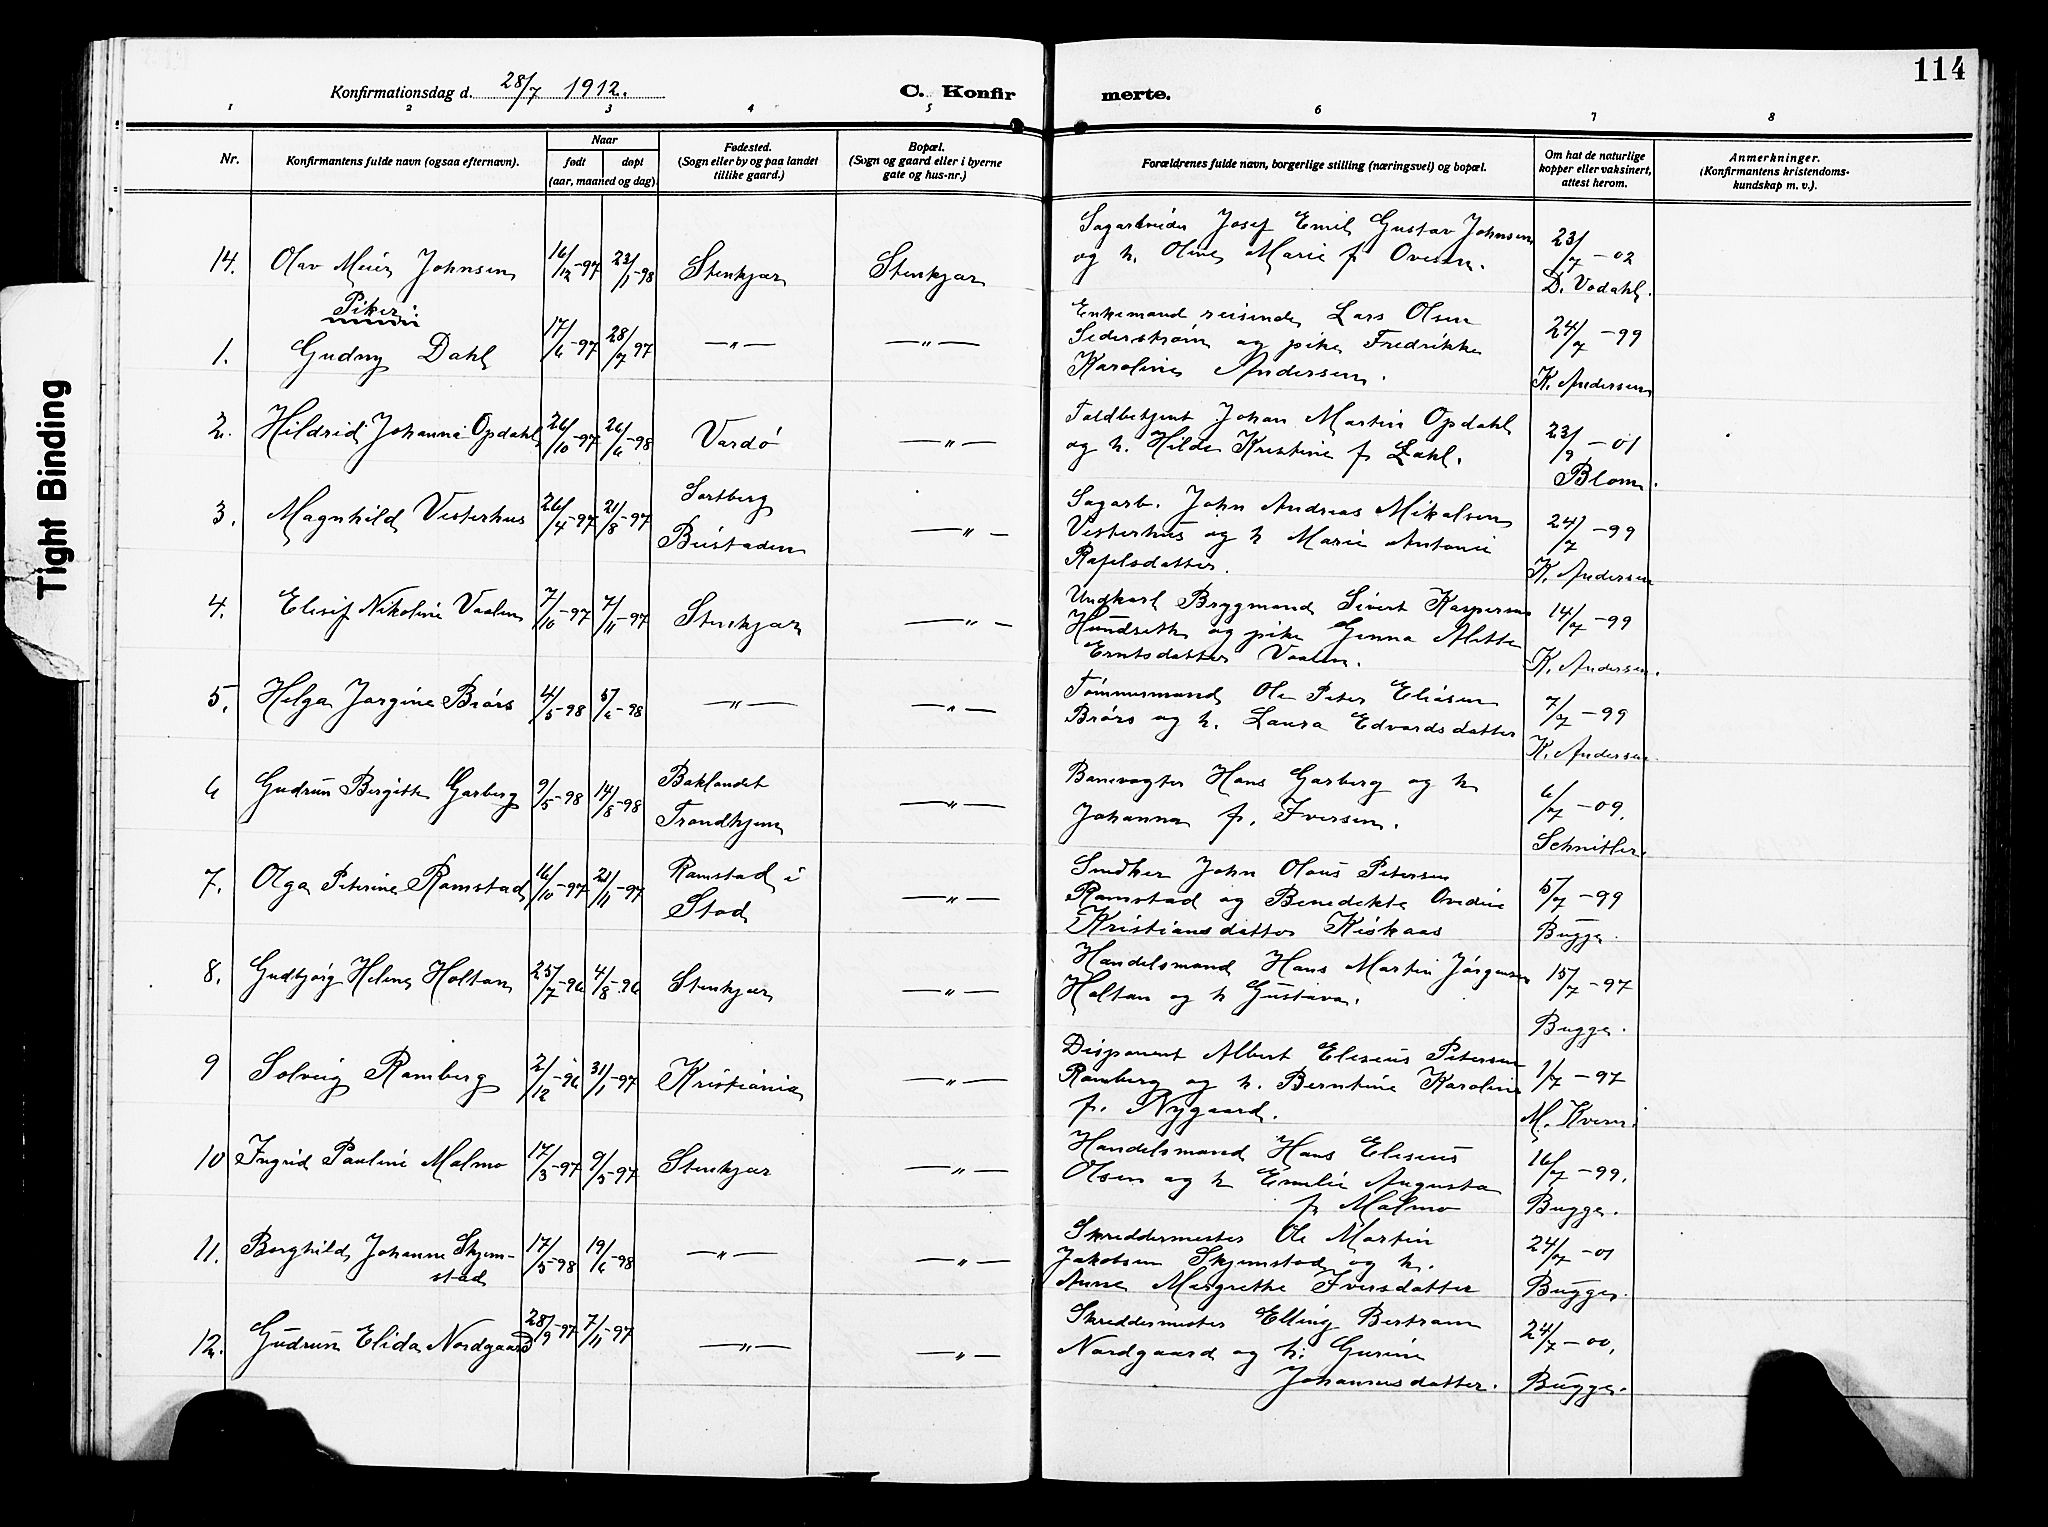 114
Konfirmationsdag d. 28/7 1912.
C. Konfirmerte.
1 2 3 4 5 6 7 8
Nr.
Konfirmantens fulde navn (ogsaa efternavn).
Naar
født døpt
(aar, maaned og dag)
Fødested.
(Sogn eller by og paa landet
tillike gaard.)
Bopæl.
(Sogn og gaard eller i byerne
gate og hus-nr.)
Forældrenes fulde navn, borgerlige stilling (næringsvei) og bopæl.
Om hat de naturlige
kopper eller vaksinert,
attest herom.
Anmerkninger.
(Konfirmantens kristendoms-
kundskap m. v.).
14. Olav Meier Johnsen 16/12-97 23/1-98 Stenkjær Stenkjær
Sagarbeider Josef Emil Gustav Johnsen
og h. Oline Marie f. Ovesen.
23/7-02
D. Vodahl.
Piker:
1. Gudny Dahl 17/6-97 28/7 97 —"— —"—
Enkemand reisende Lars Olsen
Sederstrøm og pike Fredrikke
Karoline Andersen.
24/7-99
K. Andersen
2. Hildrid Johanne Opdahl 26/10-97 26/6-98 Vardø —"—
Toldbetjent Johan Martin Opdahl
og h. Hilda Kristine f. Dahl.
23/9-01
Blom.
3. Magnhild Vesterhus 26/4-97 21/8-97 Sartberg
Beistaden —"—
Sagarb. John Andreas Mikalsen
Vesterhus og h Marie Antonie
Rafelsdatter.
24/7-99
K. Andersen
4. Elisif Nikoline Vaalen 7/10-97 7/11-97 Stenkjær —"—
Ungkarl Bryggmand Sivert Kaspersen
Hundseth og pike Ginna Alette
Erntsdatter Vaalen.
14/7-99
K. Andersen.
5. Helga Jørgine Brørs 4/5-98 5/6-98 —"— —"—
Tømmermand Ole Peter Eliasen
Brørs og h. Laura Edvardsdatter
7/7-99
K. Andersen.
6 Gudrun Bergitte Garberg 9/5-98 14/8-98 Baklandet
Trondhjem —"—
Banevogter Hans Garberg og h
Johanna f. Iversen.
6/7-09.
Schnitler.
7. Olga Peterine Ramstad 16/10-97 21/11-97 Ramstad i
Stod —"—
Snedker John Olaus Petersen
Ramstad og Benedikte Ovedine
Kristiansdatter Kirkaas
5/7-99
Bugge.
8. Gudbjørg Helene Holtan 25/7-96 4/8-96 Stenkjær —"—
Handelsmand Hans Martin Jørgensen
Holtan og h Gustava.
15/7-97
Bugge.
9 Solveig Ramberg 2/12-96 31/1-97 Kristiania —"—
Disponent Albert Elesius Petersen
Ramberg og h. Berntine Karoline
f. Nygaard.
1/7-97
M. Kverni
10 Ingrid Pauline Malmo 17/3-97 9/5-97 Stenkjær —"—
Handelsmand Hans Elesius
Olsen og h Emilie Augusta
f Malmo
16/7-99.
Bugge.
11. Borghild Johanne Skjem-
stad 17/5-98 19/6-98 —"— —"—
Skreddermester Ole Martin
Jakobsen Skjemstad og h.
Anne Margrethe Iversdatter
24/7-01
Bugge.
12. Gudrun Elida Nordgaard 28/9-97 7/11-97 —"— —"—
Skreddermester Elling Bertram
Nordgaard og h: Gurine
Johannesdatter.
24/7-00.
Bugge.
Tight Binding